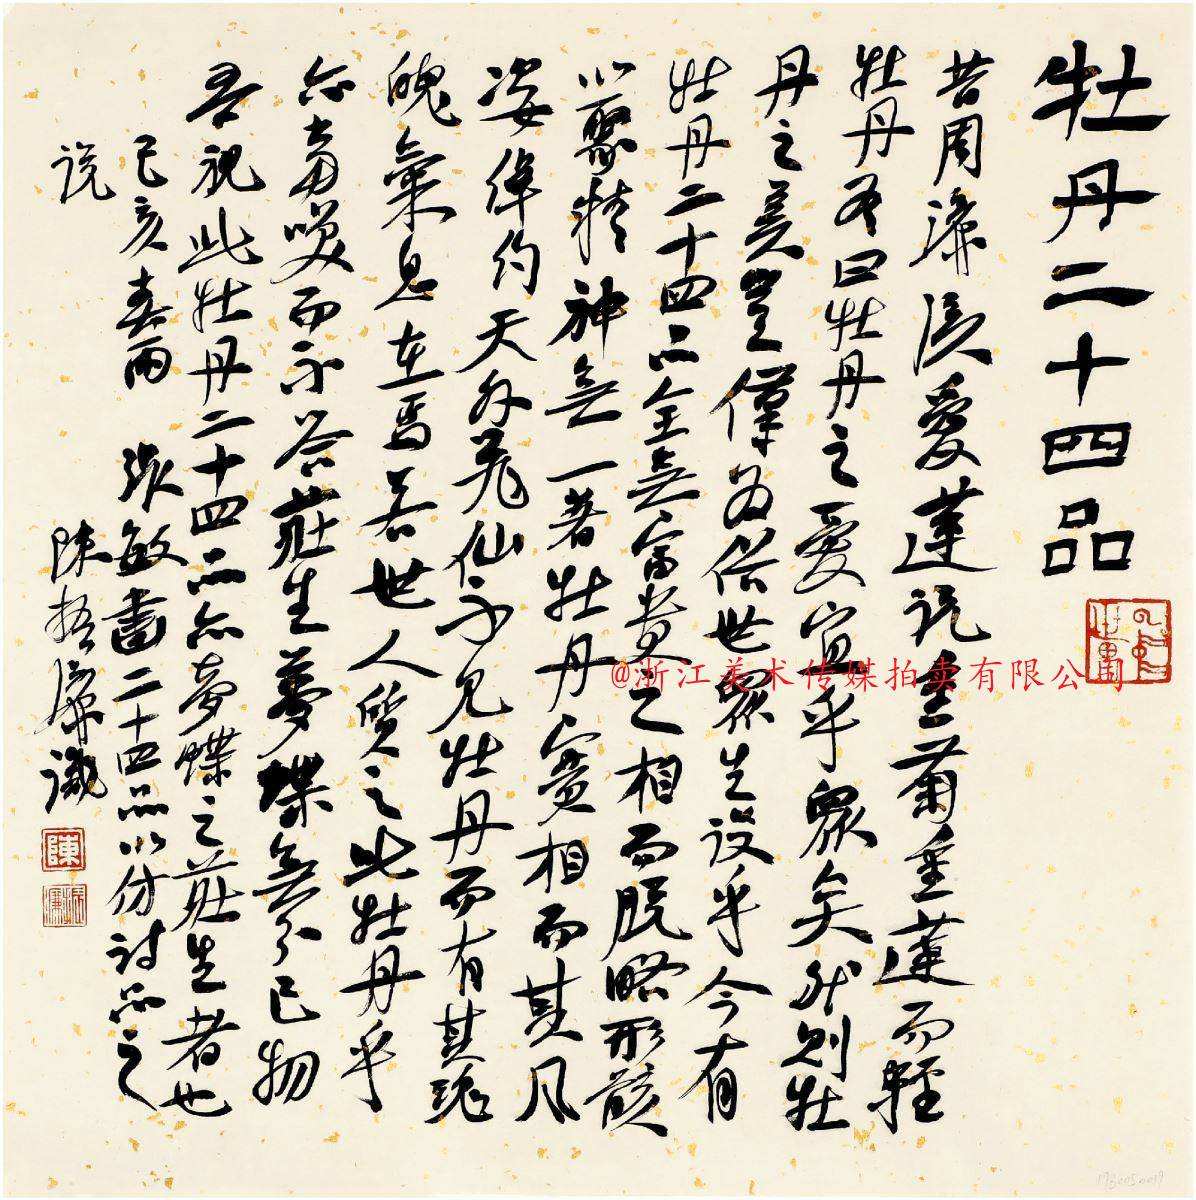 牡丹二十四品
昔周濂溪愛蓮説重菊重蓮而輕
牡丹有曰牡丹之愛宜乎眾矣然則牡
丹之美豈僅為俗世眾生設乎今有
牡丹二十四品全無富貴之相而脫略形骸
以聚精神無一著牡丹實相而其風
姿綽約天外飛仙不見牡丹而有其魂
魄氣息在焉若世人質之此牡丹乎
亦當咲而不答莊生夢蝶無分己物
吾視此牡丹二十四品亦夢蝶之莊生者也
己亥春雨 張敏畫二十四品以仿詩品之
説 陳振濂識
陳
振濂
@浙江美术传媒拍卖有限公司